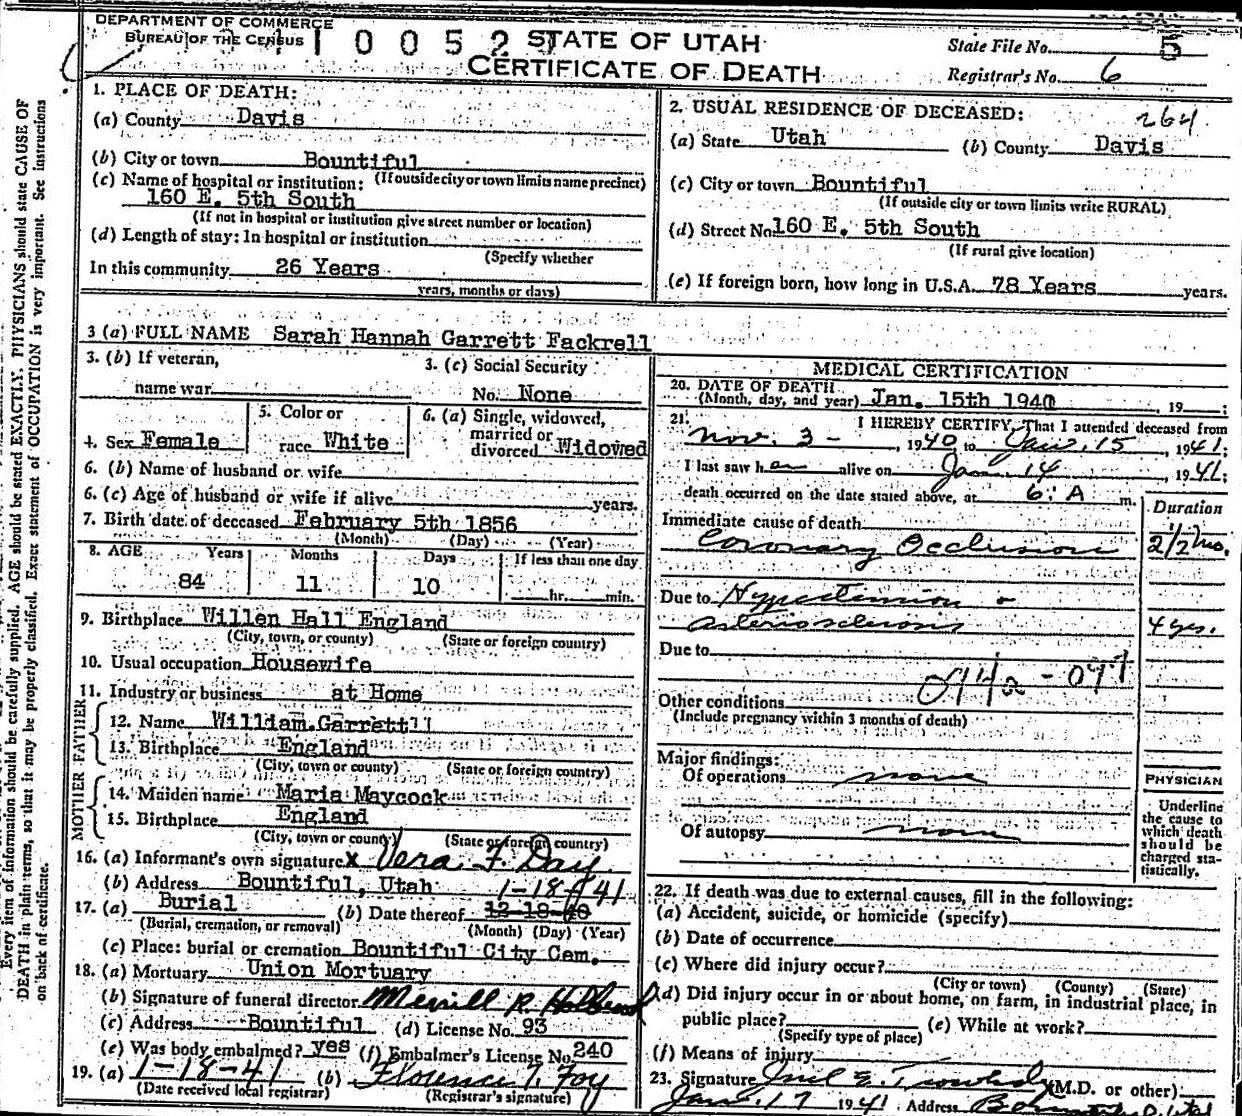 DEPARTMENT OF COMMERCE
BUREAU OF THE CENSUS
1 0 0 5 2
STATE OF UTAH
CERTIFICATE OF DEATH
State File No. 5
Registrar's No. 6
264
Every item of information should be carefully supplied. AGE should be stated EXACTLY. PHYSICIANS should state CAUSE OF
DEATH in plain terms, so that it may be properly classified. Exact statement of OCCUPATION is very important. See instructions
on back of certificate.
1. PLACE OF DEATH:
(a) County Davis
(b) City or town Bountiful
(If outside city or town limits name precinct)
(c) Name of hospital or institution:
160 E. 5th South
(If not in hospital or institution give street number or location)
(d) Length of stay: In hospital or institution
(Specify whether
In this community 26 Years
years, months or days)
2. USUAL RESIDENCE OF DECEASED:
(a) State Utah (b) County Davis
(c) City or town Bountiful
(If outside city or town limits write RURAL)
(d) Street No. 160 E. 5th South
(If rural give location)
(e) If foreign born, how long in U.S.A. 78 Years years.
3 (a) FULL NAME Sarah Hannah Garrett Fackrell
3. (b) If veteran,
name war
3. (c) Social Security
No. None
4. Sex Female
5. Color or
race White
6. (a) Single, widowed,
married or
divorced Widowed
6. (b) Name of husband or wife
6. (c) Age of husband or wife if alive years.
7. Birth date of deceased February 5th 1856
(Month) (Day) (Year)
8. AGE Years Months Days If less than one day
84 11 10 hr. min.
9. Birthplace Willen Hall England
(City, town, or county) (State or foreign country)
10. Usual occupation Housewife
11. Industry or business at Home
FATHER
12. Name William Garrett
13. Birthplace England
(City, town, or county) (State or foreign country)
MOTHER
14. Maiden name Maria Maycock
15. Birthplace England
(City, town or county) (State or foreign country)
16. (a) Informant's own signature x Vera F. Day
(b) Address Bountiful, Utah
1-18-41
17. (a) Burial (b) Date thereof 12-18-40
(Burial, cremation, or removal) (Month) (Day) (Year)
(c) Place: burial or cremation Bountiful City Cem.
18. (a) Mortuary Union Mortuary
(b) Signature of funeral director Merrill R. Holbrook
(c) Address Bountiful (d) License No. 93
(e) Was body embalmed? yes (f) Embalmer's License No. 240
19. (a) 1-18-41 (b) Florence T. Foy
(Date received local registrar) (Registrar's signature)
MEDICAL CERTIFICATION
20. DATE OF DEATH
(Month, day, and year) Jan. 15th 1940, 19
21. I HEREBY CERTIFY, That I attended deceased from
Nov. 3 - , 1940 to Jan. 15, 1941;
I last saw her alive on Jan. 14 1941;
death occurred on the date stated above, at 6: A m.
Duration
Immediate cause of death
Coronary Occlusion 2 1/2 Mo.
Due to Hypertension &
arteriosclerosis 4 yrs.
Due to
Other conditions
(Include pregnancy within 3 months of death)
Major findings:
Of operations none
Of autopsy none
PHYSICIAN
Underline
the cause to
which death
should be
charged sta-
tistically.
22. If death was due to external causes, fill in the following:
(a) Accident, suicide, or homicide (specify)
(b) Date of occurrence
(c) Where did injury occur?
(City or town) (County) (State)
(d) Did injury occur in or about home, on farm, in industrial place, in
public place? (e) While at work?
(Specify type of place)
(f) Means of injury
23. Signature (M.D. or other)
Jan. 17 1941 Address